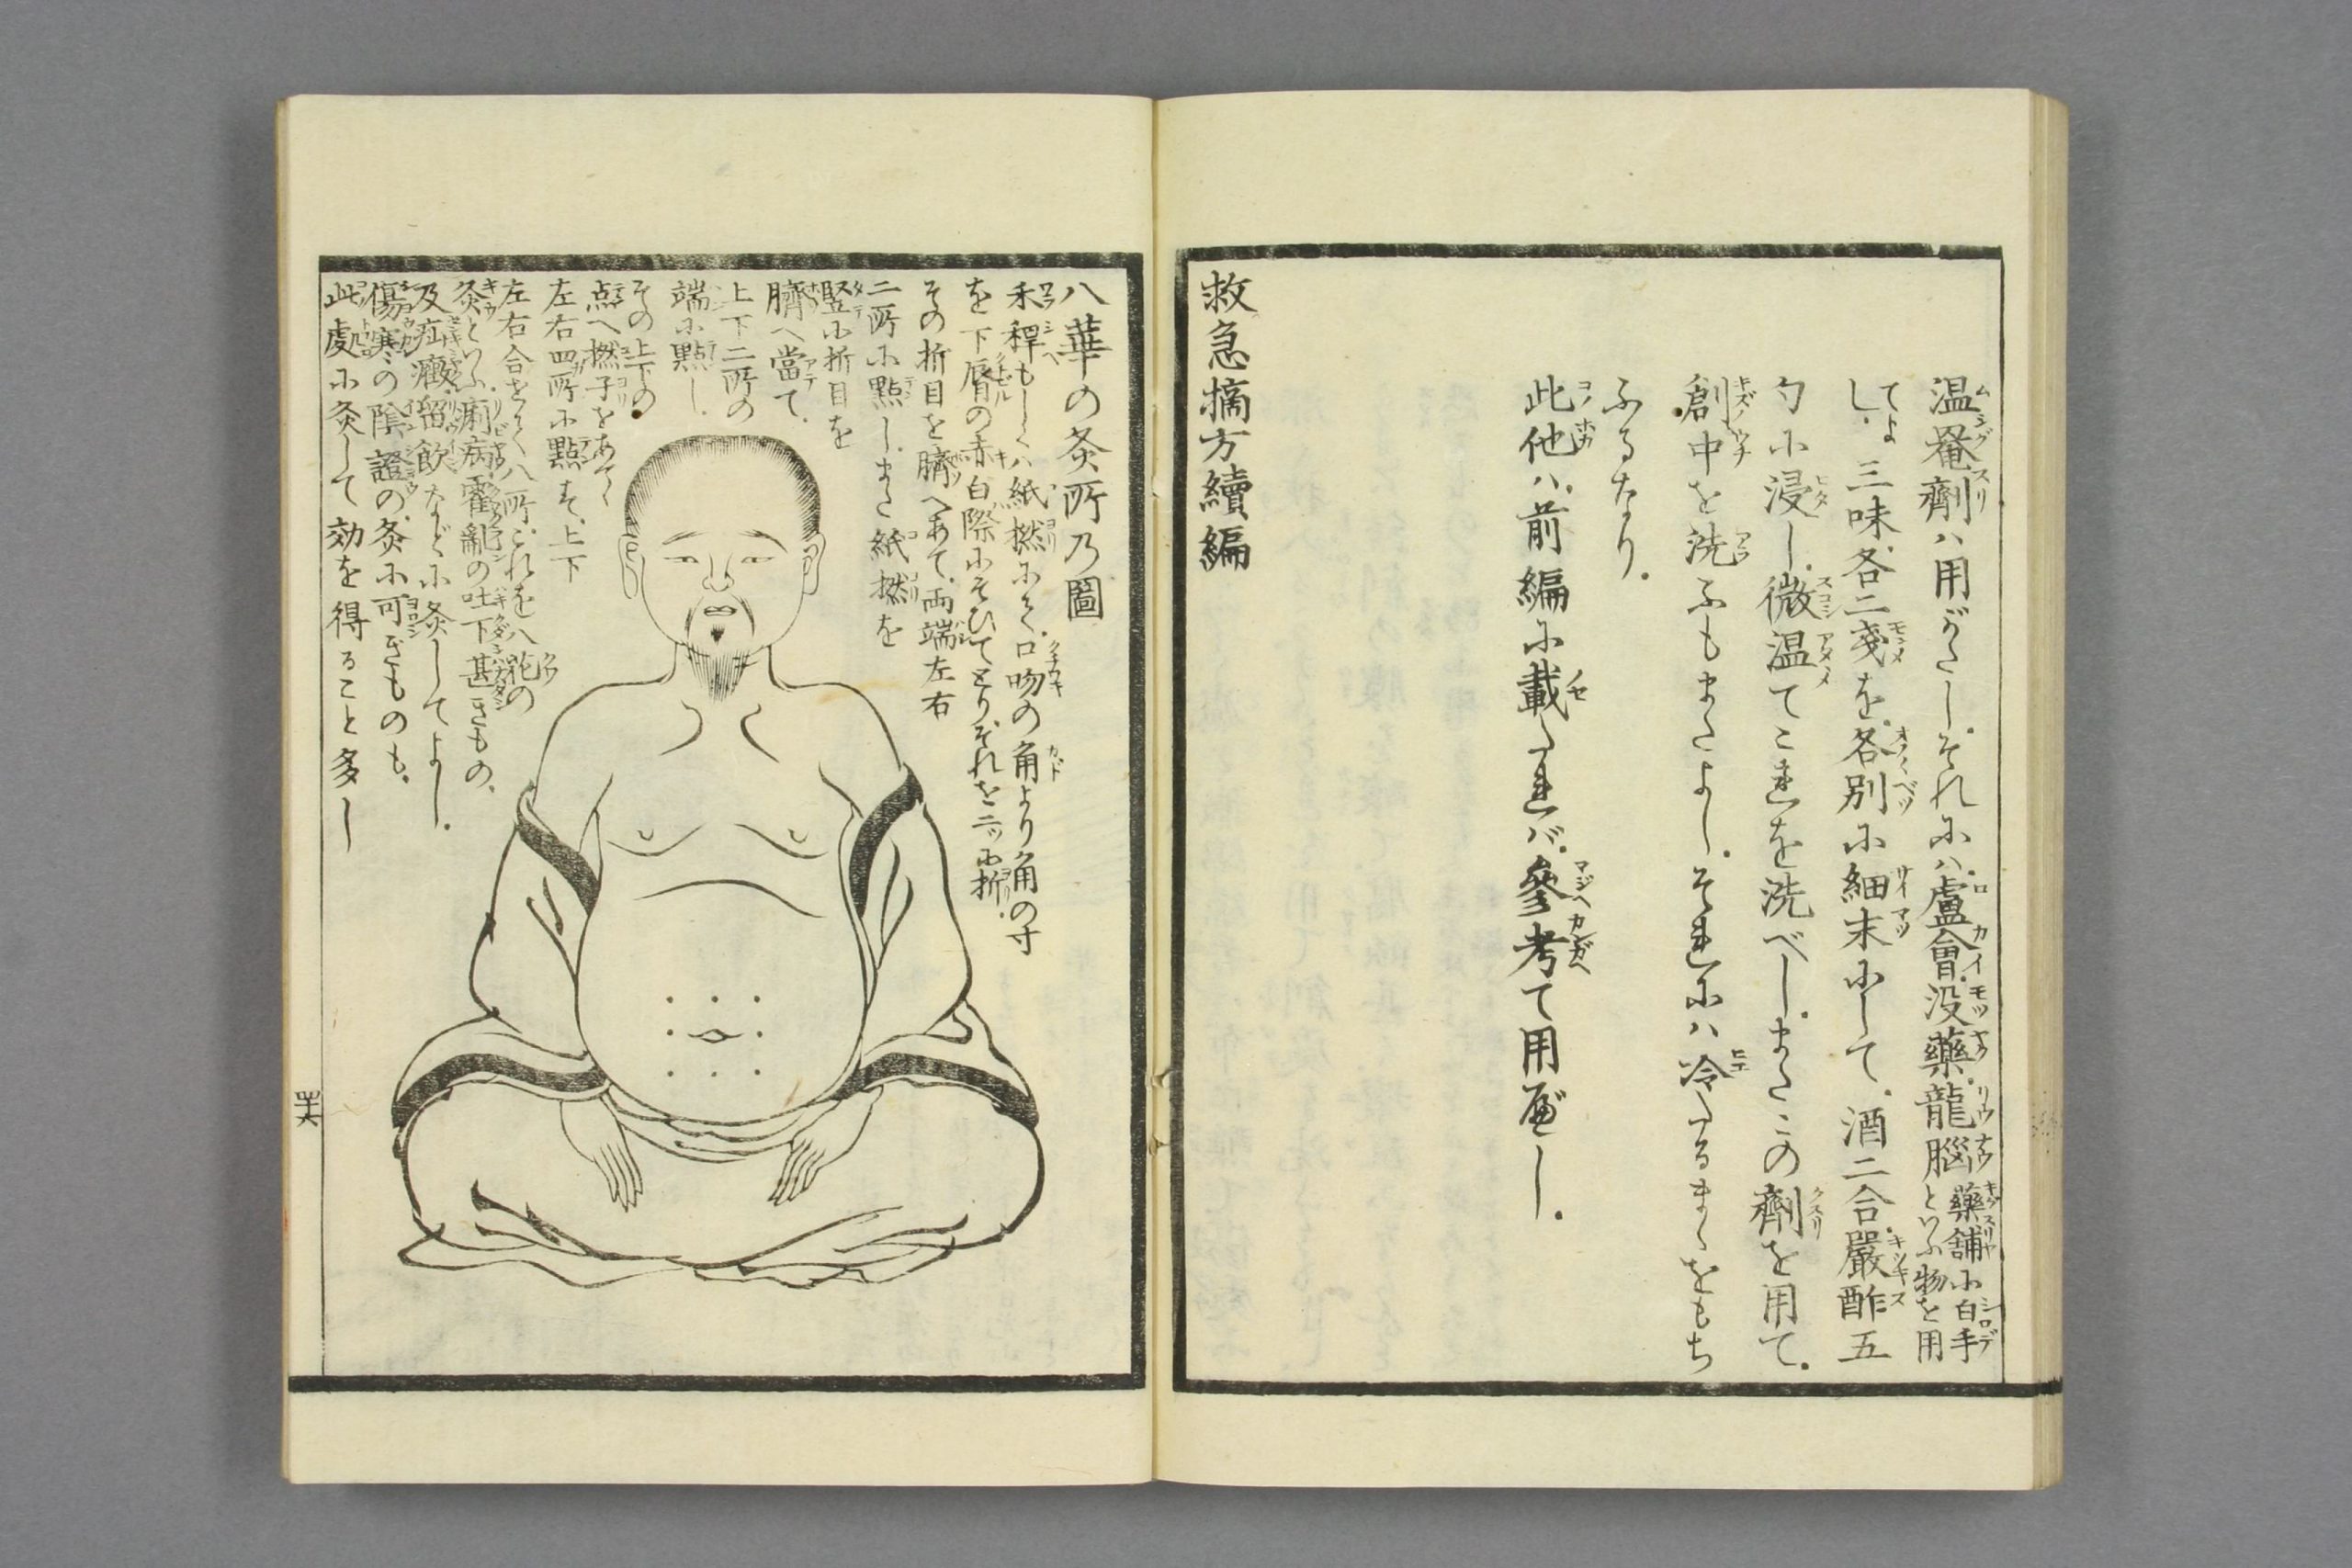 温罨劑ハ用がたし。それにハ。盧會。没藥。龍腦
藥舗に白手
といふ物を用
てよし。三味。各二戔を。各別に細末にして。酒二合。嚴酢五
勺に浸し。微温てこれを洗べし。またこの劑を用て。
創中を洗ふもまたよし。それにハ冷たるまゝをもち
ふるなり。
此他ハ。前編に載たれバ。參考て用べし。
救急摘方續編
八華の灸所乃圖
禾稈もしくハ紙撚にて。口吻の角より角の寸
を下脣の赤白際にそひてとり。それを二ッに折。
その折目を臍へあて。両端左右
二所に點し。また紙撚を
竪に折目を
臍へ當て。
上下二所の
端に點し。
その上下の
点へ撚子をあてゝ
左右四所に點す。上下
左右合せて八所。これを八花の
灸といふ。痢病。霍亂の吐下甚きもの。
及疝癥。留飲などに灸してよし。
傷寒の陰證の。灸に可きものも。
此處に灸して効を得ること多し
四十六